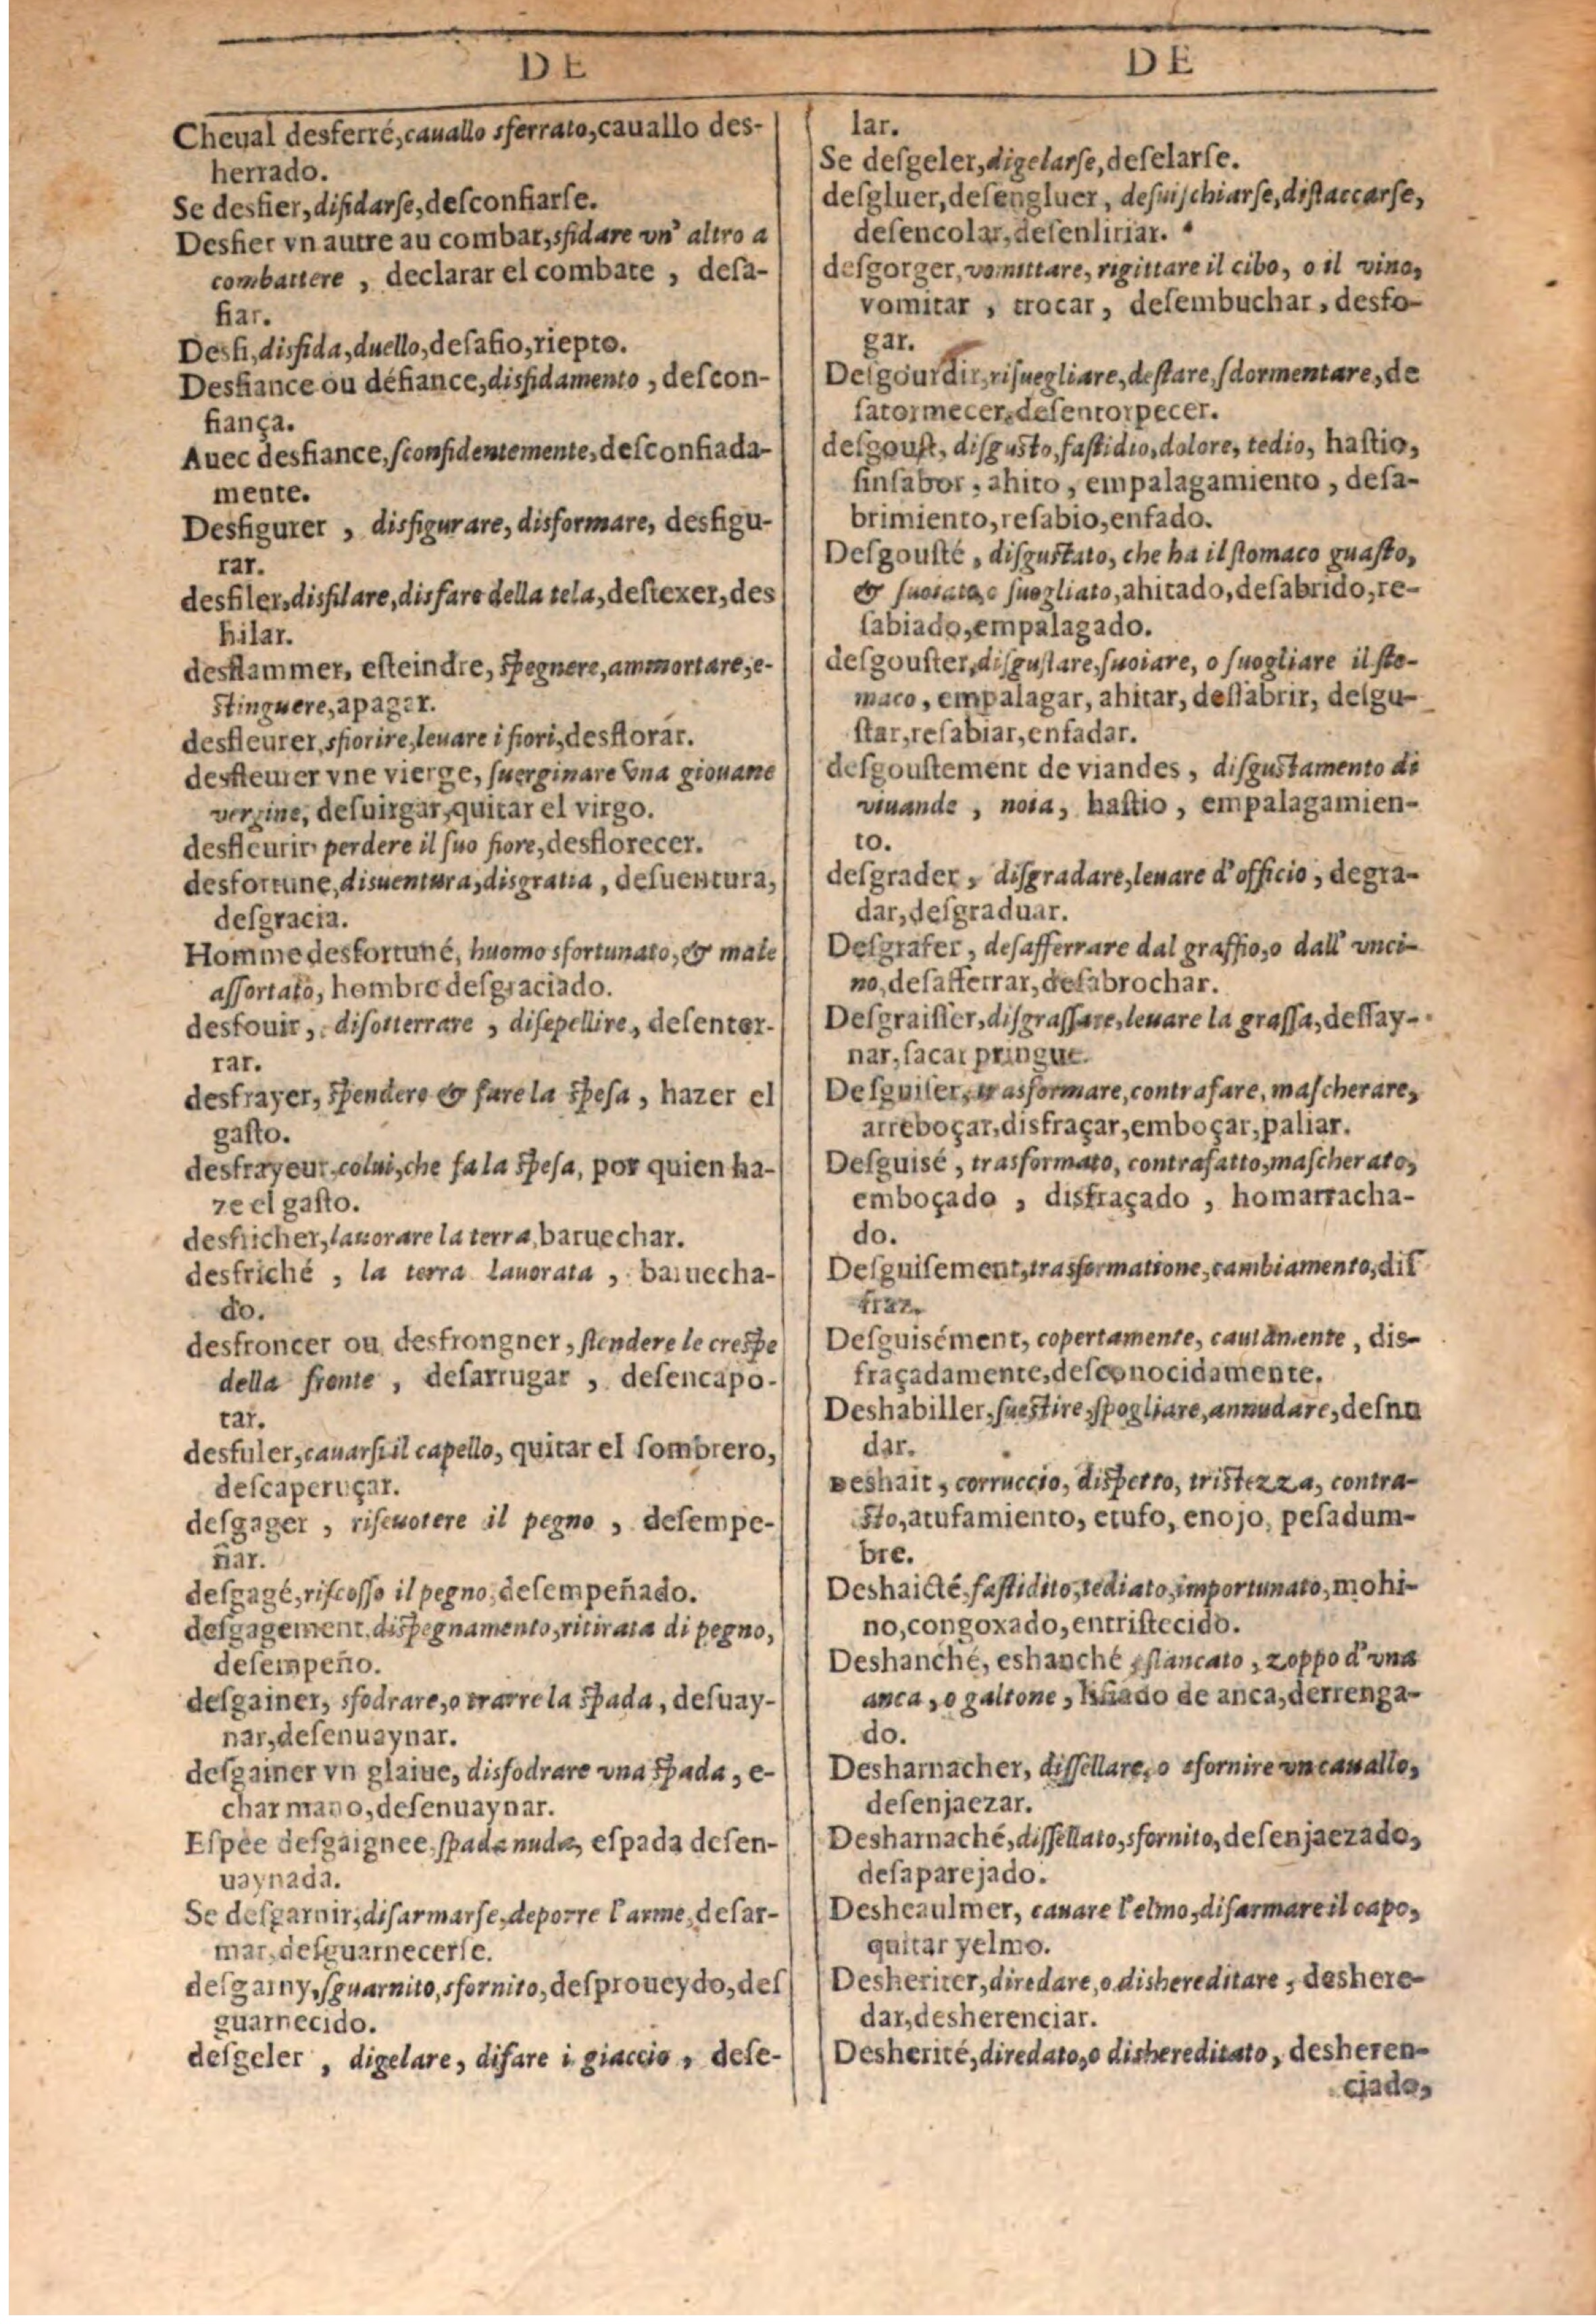 DE
Cheual desferré, cauallo sferrato, cauallo des-
herrado.
Se desfier, disidarſe, deſconfiarſe.
Desfier vn autre au combat, sfidare vn' altro a
combattere, declarar el combate, deſa-
fiar.
Desfi, disfida, duello, deſafio, riepto.
Desfiance ou défiance, disfidamento, deſcon-
fiança.
Auec desfiance, ſconfidentemente, deſconfiada-
mente.
Desfigurer, disfigurare, disformare, desfigu-
rar.
desfiler, disfilare, disfare della tela, deſtexer, des
hilar.
desflammer, eſteindre, ſpegnere, ammortare, e-
ſtinguere, apagar.
desfleurer, sfiorire, leuare i fiori, desflorar.
desfleurer vne vierge, ſuerginare vna giouane
vergine, deſuirgar, quitar el virgo.
desfleurir perdere il ſuo fiore, desflorecer.
desfortune, disuentura, disgratia, deſuentura,
deſgracia.
Homme desfortuné, huomo sfortunato, & male
aſſortato, hombre deſgraciado.
desfouir, diſotterrare, diſepellire, deſenter-
rar.
desfrayer, ſpendere & fare la ſpeſa, hazer el
gaſto.
desfrayeur, colui, che fa la ſpeſa, por quien ha-
ze el gaſto.
desfricher, lauorare la terra, baruechar.
desfriché, la terra lauorata, baruecha-
do.
desfroncer ou desfrongner, ſtendere le creſpe
della fronte, deſarrugar, deſencapo-
tar.
desfuler, cauarsi il capello, quitar el ſombrero,
deſcaperuçar.
deſgager, riſcuotere il pegno, deſempe-
ñar.
deſgagé, riſcoſſo il pegno, deſempeñado.
deſgagement, diſpegnamento, ritirata di pegno,
deſempeño.
deſgainer, sfodrare, o trarre la ſpada, deſuay-
nar, deſenuaynar.
deſgainer vn glaiue, disfodrare vna ſpada, e-
char mano, deſenuaynar.
Eſpee deſgaignee, ſpada nuda, eſpada deſen-
uaynada.
Se deſgarnir, diſarmarſe, deporre l'arme, deſar-
mar, deſguarnecerſe.
deſgarny, ſguarnito, sfornito, deſproueydo, deſ
guarnecido.
deſgeler, digelare, difare i giaccio, deſe-
DE
lar.
Se deſgeler, digelarſe, deſelarſe.
deſgluer, deſengluer, deſuiſchiarſe, diſtaccarſe,
deſencolar, deſenliriar.
deſgorger, vomittare, rigittare il cibo, o il vino,
vomitar, trocar, deſembuchar, desfo-
gar.
Deſgourdir, riſuegliare, deſtare, ſdormentare, de
ſatormecer, deſentorpecer.
deſgouſt, diſguſto, faſtidio, dolore, tedio, haſtio,
ſinſabor, ahito, empalagamiento, deſa-
brimiento, reſabio, enfado.
Deſgouſté, diſguſtato, che ha il ſtomaco guaſto,
& ſuoiato, o ſuogliato, ahitado, deſabrido, re-
ſabiado, empalagado.
deſgouſter, diſguſtare, ſuoiare, o ſuogliare il ſto-
maco, empalagar, ahitar, deſſabrir, deſgu-
ſtar, reſabiar, enfadar.
deſgouſtement de viandes, diſguſtamento di
viuande, noia, haſtio, empalagamien-
to.
deſgrader, diſgradare, leuare d'officio, degra-
dar, deſgraduar.
Deſgrafer, deſafferrare dal graffio, o dall' vnci-
no, deſafferrar, deſabrochar.
Deſgraiſſer, diſgraſſare, leuare la graſſa, deſſay-
nar, ſacar pringue.
Deſguiſer, trasformare, contrafare, maſcherare,
arreboçar, disfraçar, emboçar, paliar.
Deſguisé, trasformato, contrafatto, maſcherato,
emboçado, disfraçado, homarracha-
do.
Deſguiſement, trasformatione, cambiamento, diſ
fraz.
Deſguisément, copertamente, cautamente, dis-
fraçadamente, deſconocidamente.
Deshabiller, ſueſtire, ſpogliare, annudare, deſnu
dar.
Deshait, corruccio, diſpetto, triſtezza, contra-
ſto, atufamiento, etufo, enojo, peſadum-
bre.
Deshaicté, faſtidito, tediato, importunato, mohi-
no, congoxado, entriſtecido.
Deshanché, eshanché, ſlancato, zoppo d'vna
anca, o galtone, liſiado de anca, derrenga-
do.
Desharnacher, diſſellare, o sfornire vn cauallo,
deſenjaezar.
Desharnaché, diſſellato, sfornito, deſenjaezado,
deſaparejado.
Desheaulmer, cauare l'elmo, diſarmare il capo,
quitar yelmo.
Desheriter, diredare, o dishereditare, deshere-
dar, desherenciar.
Desherité, diredato, o dishereditato, desheren-
ciado,